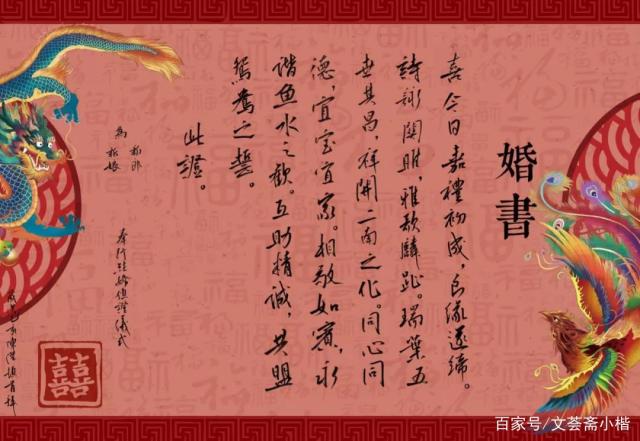 婚書
喜今日嘉禮初成,良缘遂締。
詩詠關雎,雅歌麟趾。瑞葉五
世其昌,祥開二南之化。同心同
德,宜室宜家。相敬如賓,永
谐鱼水之歡。互助精誠,共盟
鴛鴦之誓。
此證。
新郎
新娘
為
囍
百家号/文荟斋小楷